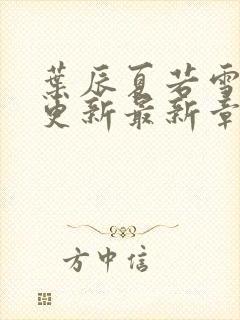 葉辰夏若雪
更新最新章
方中信